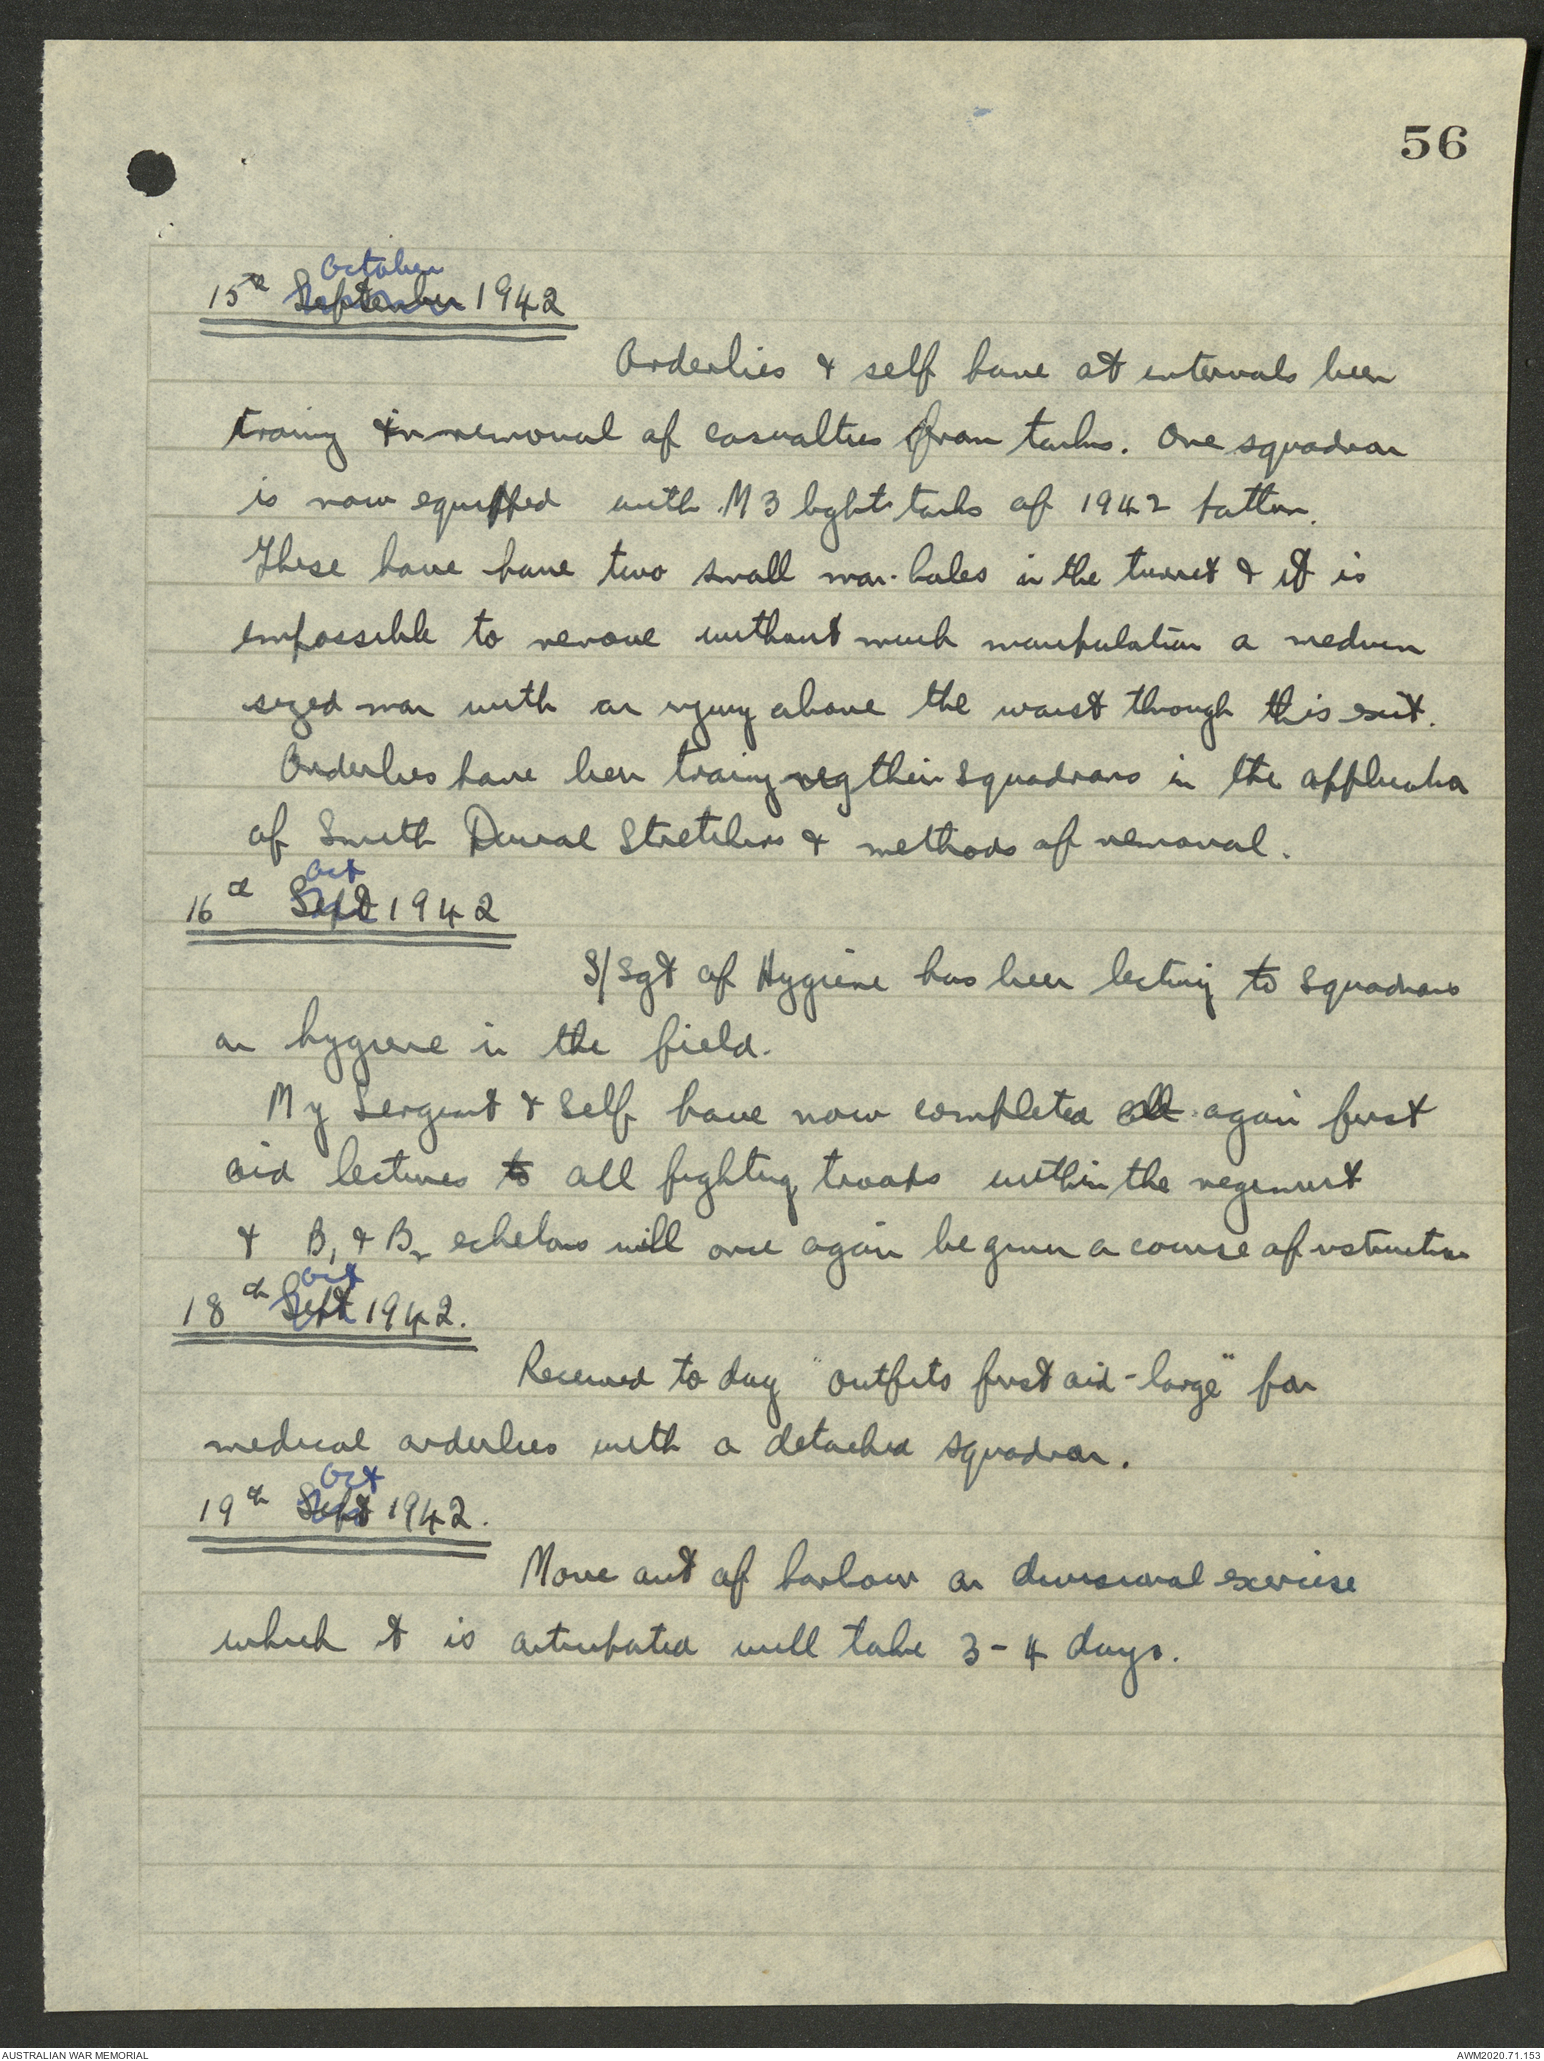 56
October
15th September 1942
Orderlies & self have at intervals been
training in removal of casualties from tanks. One squadron
is now equipped with M3 light tanks of 1942 pattern.
These have have two small man-holes in the turret & it is
impossible to remove without much manipulation a medium
sized man with an injury above the waist through this exit.
Orderlies have been training their squadrons in the application
of Smith Duval Stretchers & methods of removal.
Oct
16th Sept 1942
S/Sgt of Hygiene has been lecturing to squadrons
on hygiene in the field.
My Sergeant & self have now completed all again first
aid lectures to all fighting troops within the regiment
& B1 & B2 echelons will once again be given a course of instruction
Oct
18th Sept 1942.
Received to day "outfits first aid - large" for
medical orderlies with a detached squadron.
Oct
19th Sept 1942.
Move out of harbour on divisional exercise
which it is anticipated will take 3-4 days.
AUSTRALIAN WAR MEMORIAL
AWM2020.71.153